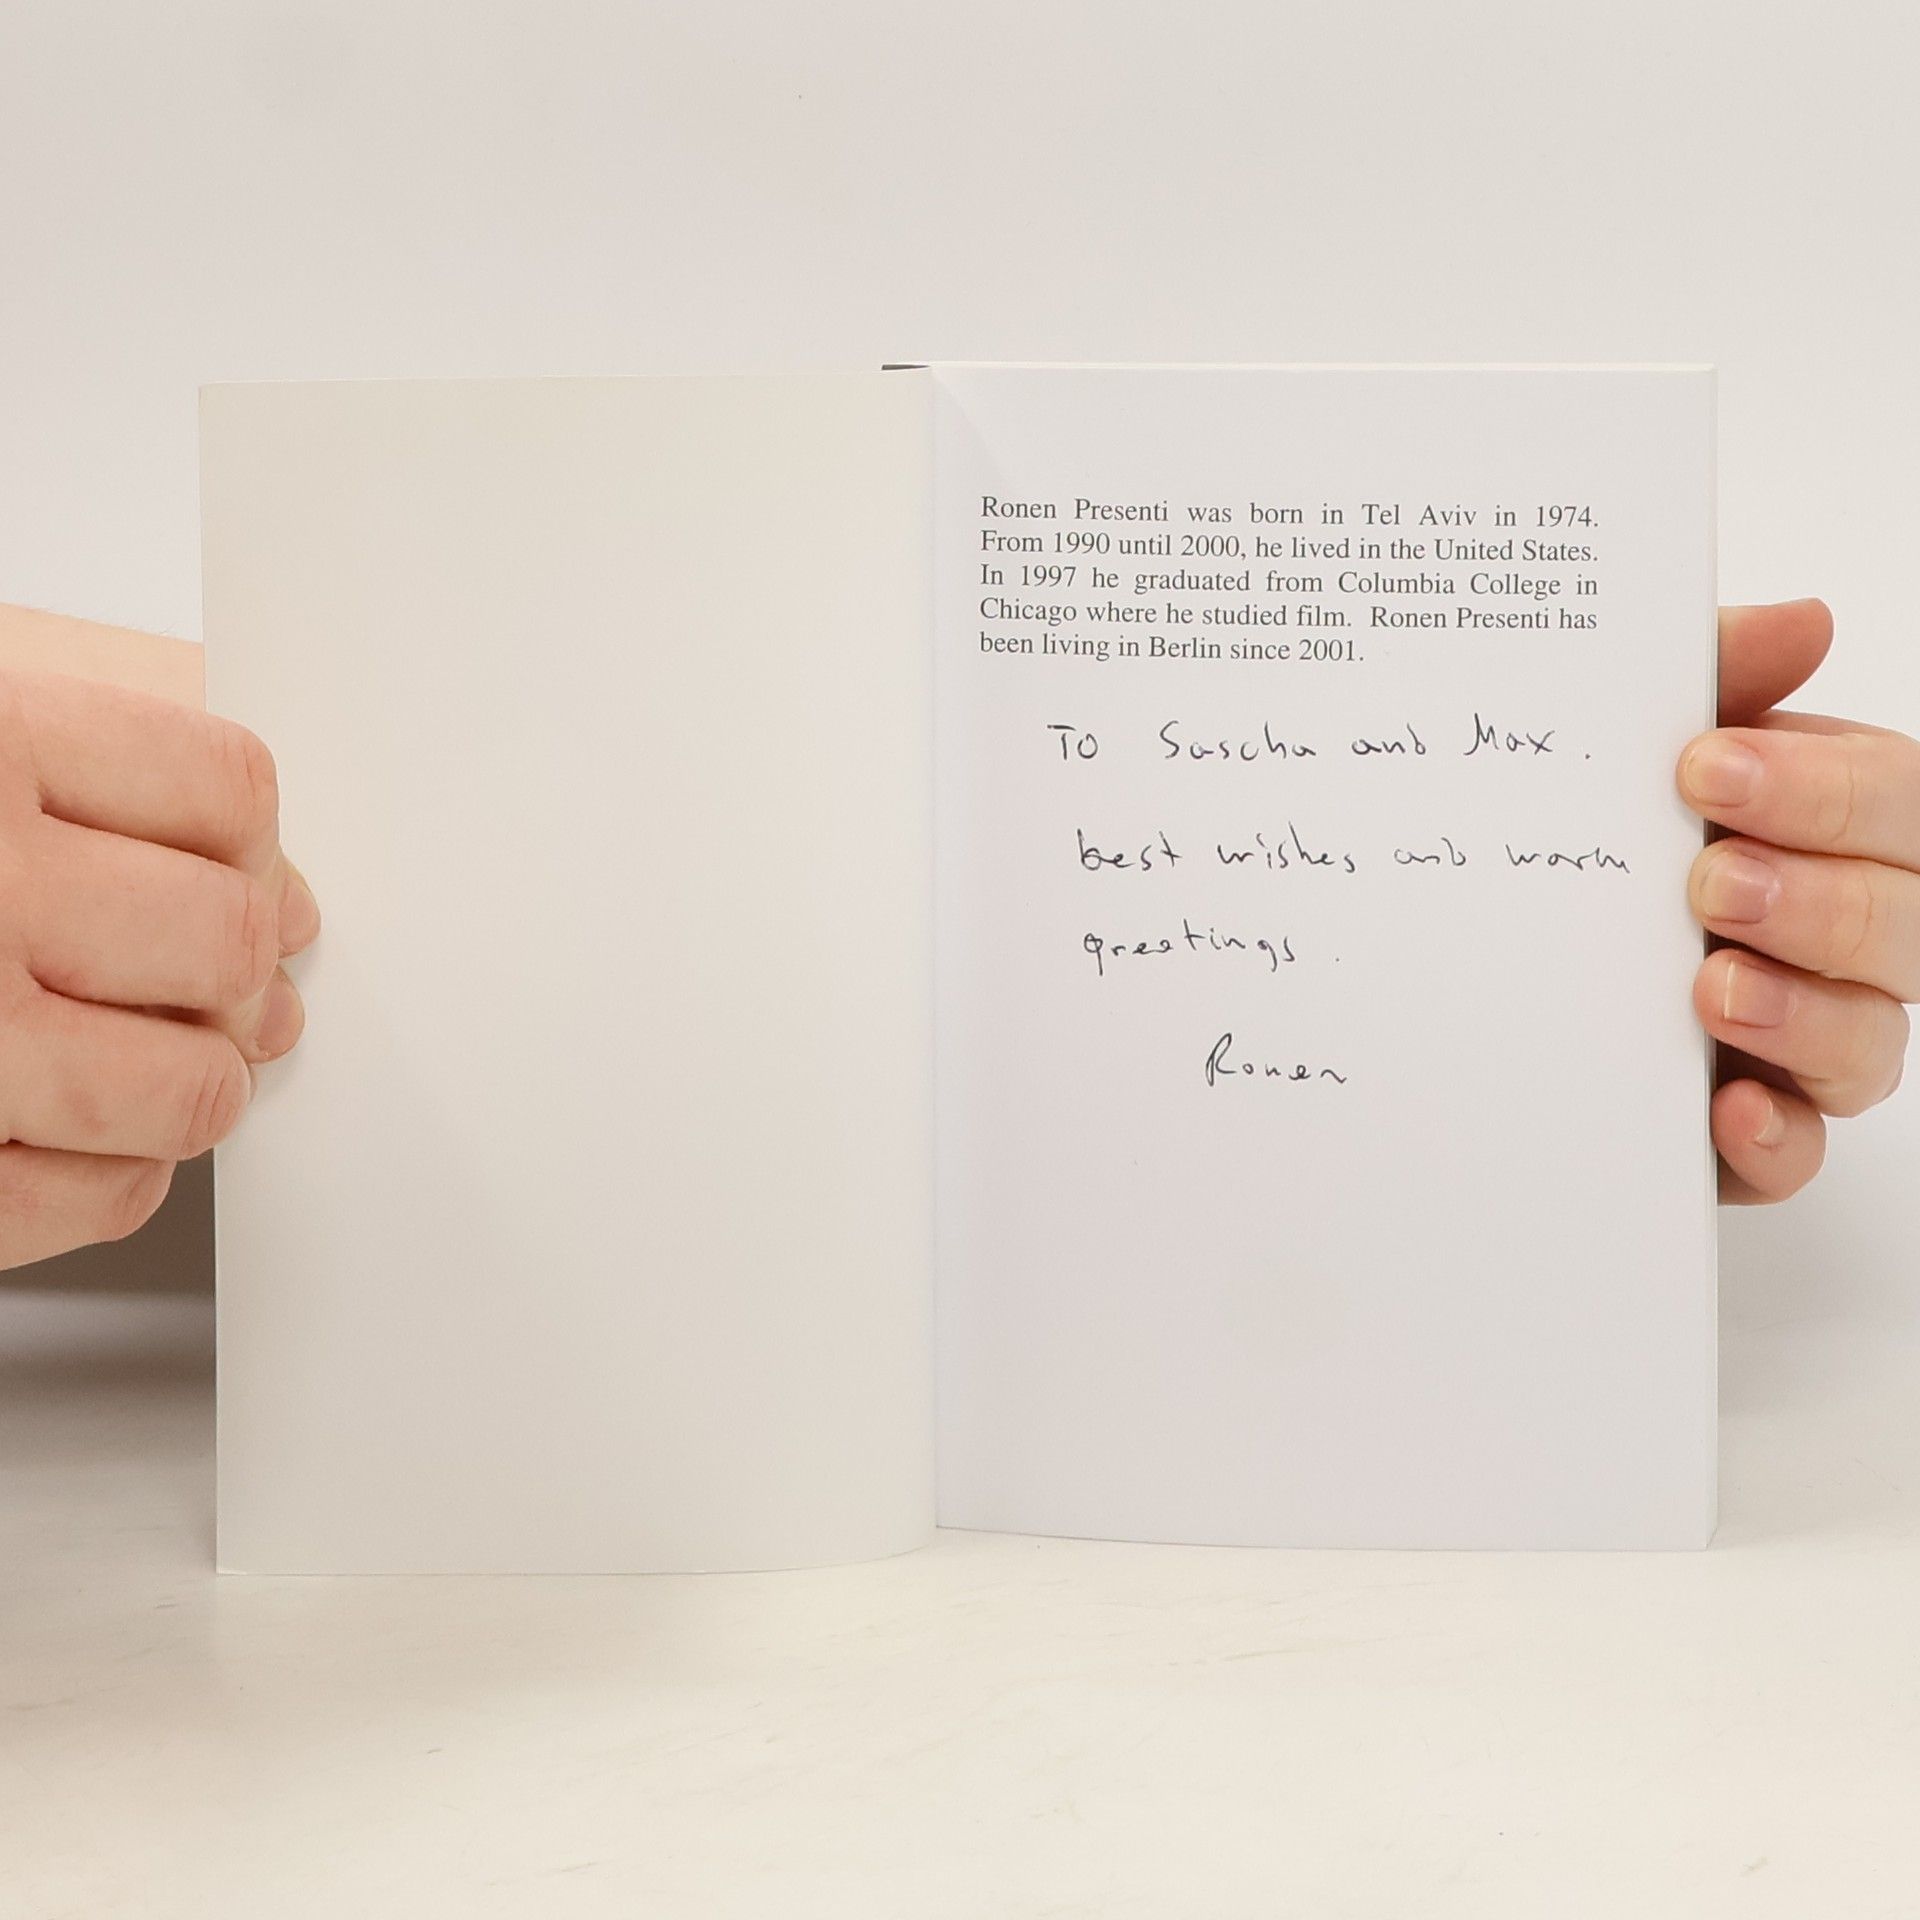 Ronen Presenti was born in Tel Aviv in 1974.
From 1990 until 2000, he lived in the United States.
In 1997 he graduated from Columbia College in
Chicago where he studied film. Ronen Presenti has
been living in Berlin since 2001.
To Sascha and Max.
best wishes and warm
greetings.
Ronen